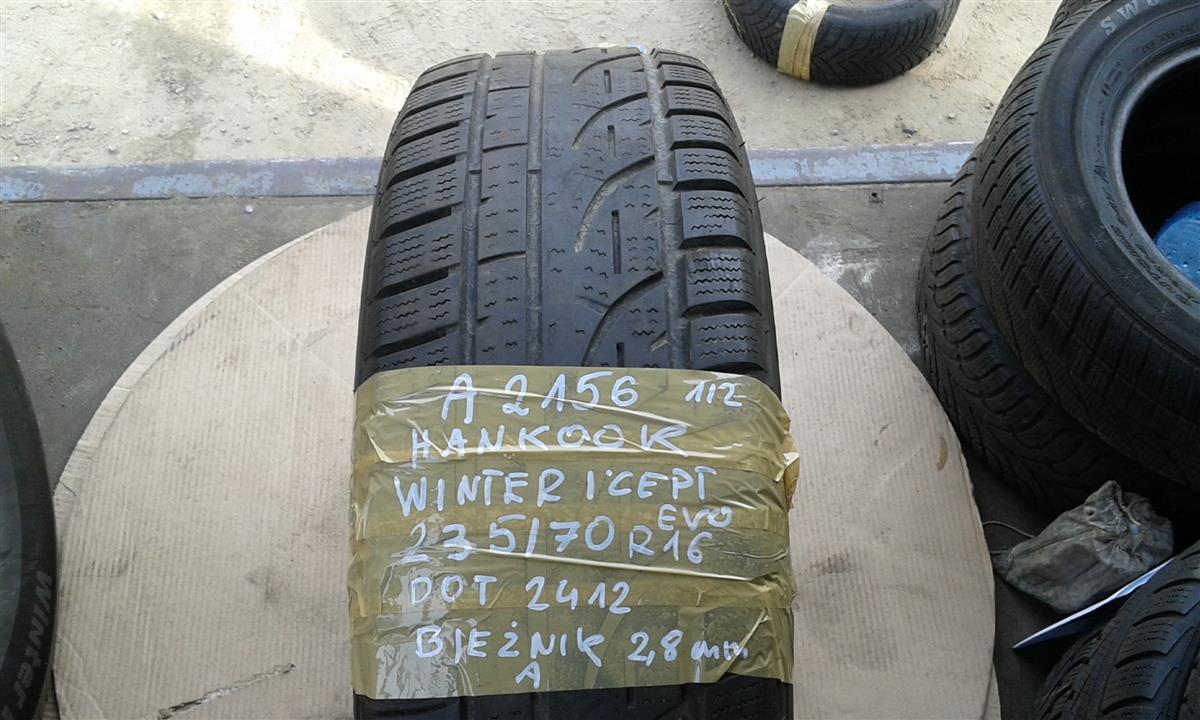 A 2156 1/2
HANKOOK
WINTER I'CEPT
EVO
235/70 R16
DOT 2412
BIEŻNIK 2,8 mm
A
Winter